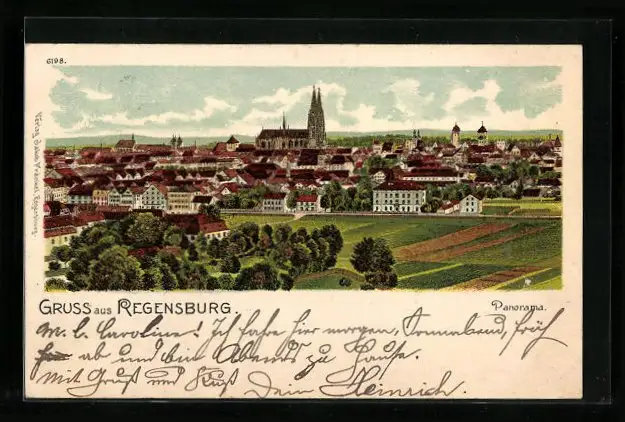 6198.
Verlag
Regensburg.
GRUSS aus REGENSBURG.
Panorama.
M. l. Caroline! Ich fahre hier morgen, Sonnabend, früh
ab und bin Abends zu Hause.
Mit Gruß und Kuß Dein Heinrich.